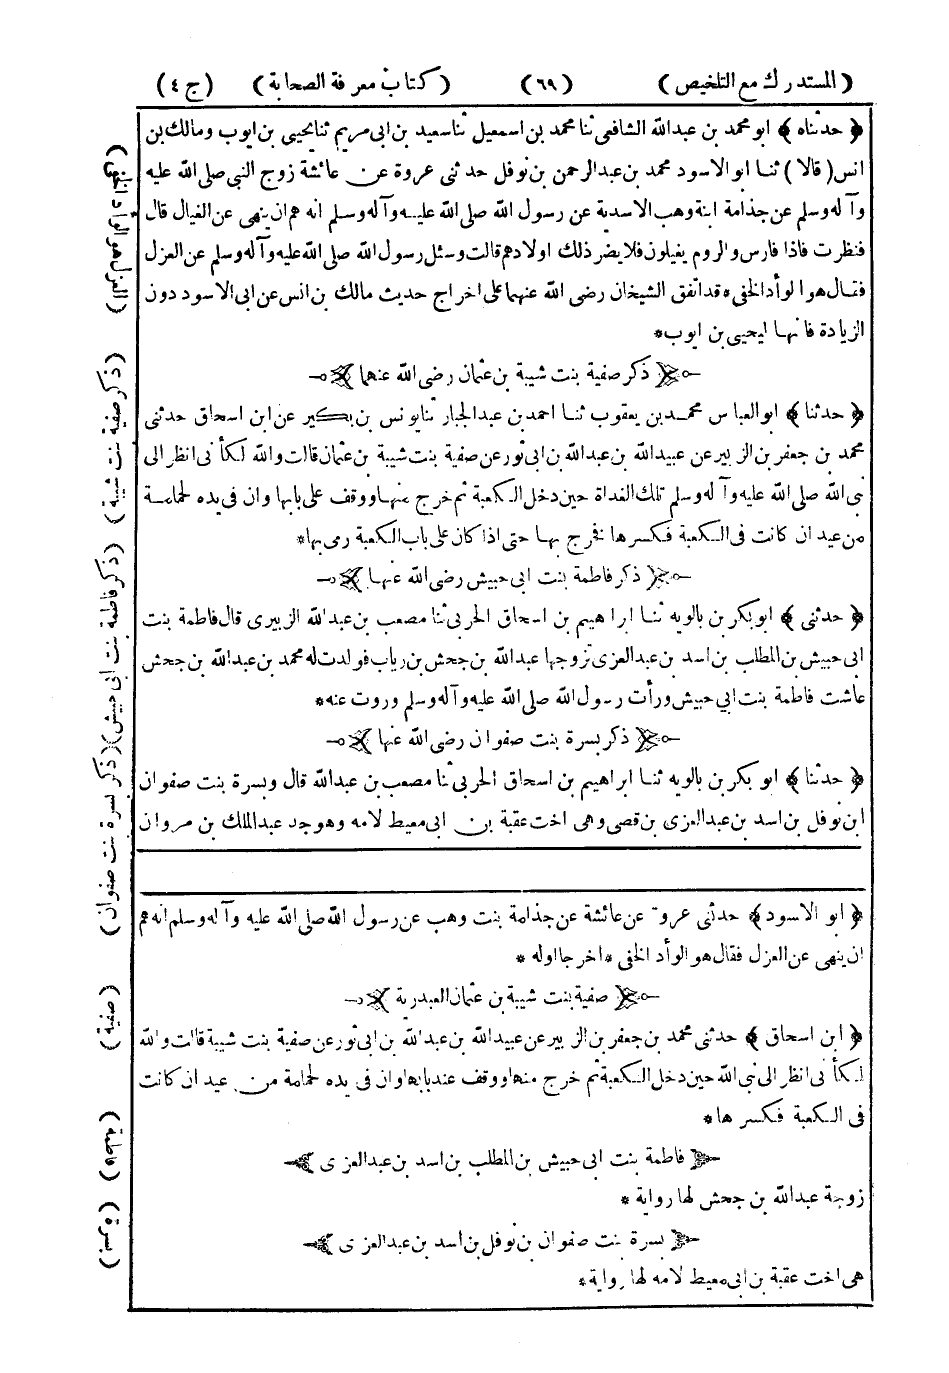 (المستدرك مع التلخيص) (٦٩) (كتاب معرفة الصحابة) (ج ٤)
﴿ حدثناه ﴾ ابو محمد بن عبدالله الشافعي ثنا محمد بن اسمعيل ثنا سعيد بن ابى مريم ثنا يحيى بن ايوب ومالك بن
انس (قالا) ثنا ابو الاسود محمد بن عبدالرحمن بن نوفل حدثنى عروة عن عائشة زوج النبى صلى الله عليه
وآله وسلم عن جذامة ابنة وهب الاسدية عن رسول الله صلى الله عليه وآله وسلم انه هم ان ينهى عن الغيال قال
فنظرت فاذا فارس والروم يغيلون فلا يضر ذلك اولادهم قالت وسئل رسول الله صلى الله عليه وآله وسلم عن العزل
فقال هو الوأد الخفى * قد اتفق الشيخان رضى الله عنهما على اخراج حديث مالك بن انس عن ابى الاسود دون
الزيادة فانها ليحيى بن ايوب *
ذكر صفية بنت شيبة بن عثمان رضى الله عنهما
﴿ حدثنا ﴾ ابو العباس محمد بن يعقوب ثنا احمد بن عبد الجبار ثنا يونس بن بكير عن ابن اسحاق حدثنى
محمد بن جعفر بن الزبير عن عبيدالله بن عبدالله بن ابى ثور عن صفية بنت شيبة بن عثمان قالت والله لكأنى انظر الى
نبى الله صلى الله عليه وآله وسلم تلك الغداة حين دخل الكعبة ثم خرج منها ووقف على بابها وان فى يده لحمامة
من عيدان كانت فى الكعبة فكسرها فخرج بها حتى اذا كان على باب الكعبة رمى بها *
ذكر فاطمة بنت ابى حبيش رضى الله عنها
﴿ حدثنى ﴾ ابو بكر بن بالويه ثنا ابراهيم بن اسحاق الحربى ثنا مصعب بن عبدالله الزبيرى قال فاطمة بنت
ابى حبيش بن المطلب بن اسد بن عبد العزى تزوجها عبدالله بن جحش بن رياب فولدت له محمد بن عبدالله بن جحش
عاشت فاطمة بنت ابي حبيش ورأت رسول الله صلى الله عليه وآله وسلم وروت عنه *
ذكر بسرة بنت صفوان رضى الله عنها
﴿ حدثنا ﴾ ابو بكر بن بالويه ثنا ابراهيم بن اسحاق الحربى ثنا مصعب بن عبدالله قال وبسرة بنت صفوان
ابن نوفل بن اسد بن عبد العزى بن قصى وهى اخت عقبة بن ابى معيط لامه وهو جد عبد الملك بن مروان
﴿ ابو الاسود ﴾ حدثنى عروة عن عائشة عن جذامة بنت وهب عن رسول الله صلى الله عليه وآله وسلم انه هم
ان ينهى عن العزل فقال هو الوأد الخفى * اخرجا اوله *
صفية بنت شيبة بن عثمان العبدرية
﴿ ابن اسحاق ﴾ حدثنى محمد بن جعفر بن الزبير عن عبيدالله بن عبدالله بن ابى ثور عن صفية بنت شيبة قالت والله
لكأنى انظر الى نبى الله حين دخل الكعبة ثم خرج منها ووقف عند بابها وان فى يده لحمامة من عيدان كانت
فى الكعبة فكسرها *
فاطمة بنت ابى حبيش بن المطلب بن اسد بن عبد العزى
زوجة عبدالله بن جحش لها رواية *
بسرة بنت صفوان بن نوفل بن اسد بن عبد العزى
هى اخت عقبة بن ابى معيط لامه لها رواية *
(العزل هو الوأد الخفى)
(ذكر صفية بنت شيبة)
(ذكر فاطمة بنت ابى حبيش)
(ذكر بسرة بنت صفوان)
(صفية)
(فاطمة)
(بسرة)